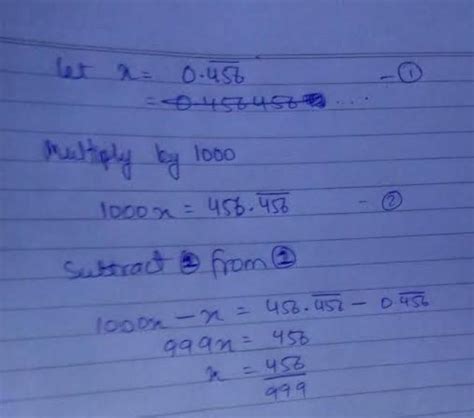 let x = 0.4̅5̅6̅ — ①
= 0.456456 ....
Multiply by 1000
1000x = 456.4̅5̅6̅ — ②
Subtract ① from ②
1000x - x = 456.4̅5̅6̅ - 0.4̅5̅6̅
999x = 456
x = 456/999